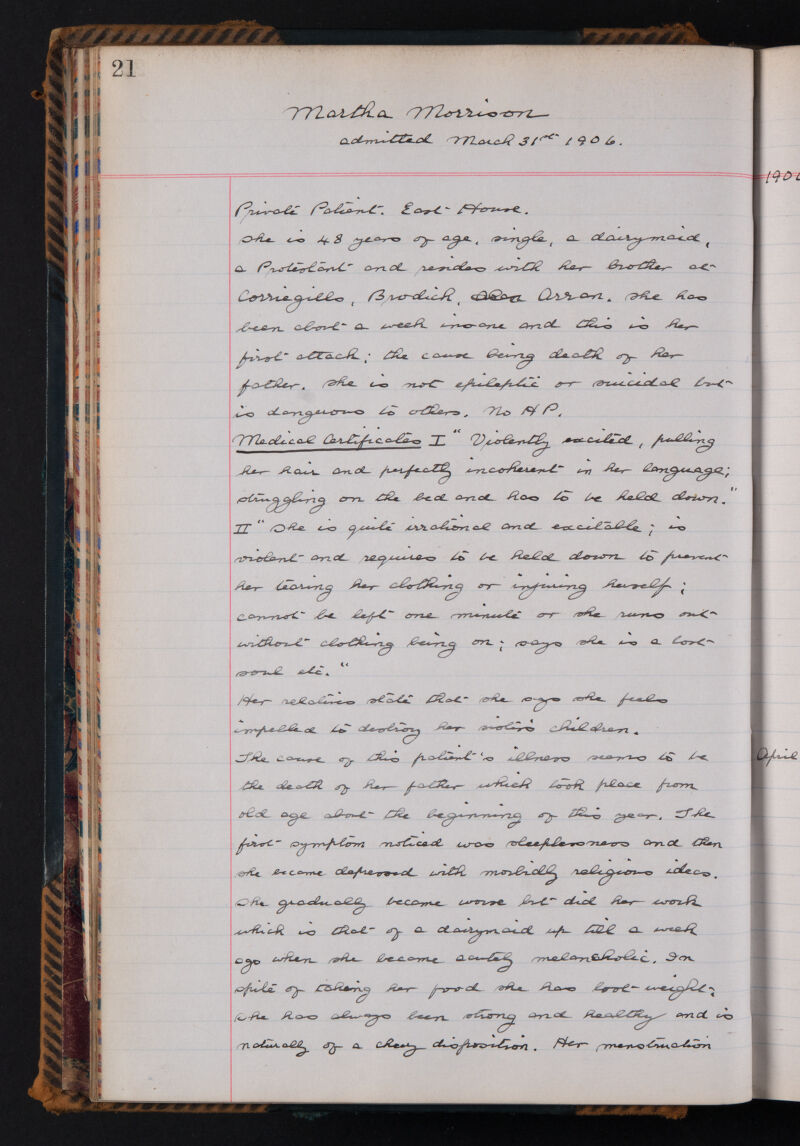 21
Martha Morrison
admitted March 31st 1906.
1906
Private Patient. East House.
She is 48 years of age, single, a dairymaid,
a Protestant and resides with her brother at
Corriegills, Brodick, Arran. She has
been about a week insane and this is her
first attack; the cause being death of her
father. She is not epileptic or suicidal but
is dangerous to others. No H P.
Medical Certificates I "Violently excited, pulling
her hair and perfectly incoherent in her language;
struggling on the bed and has to be held down."
II "She is quite irrational and excitable; is
violent and requires to be held down to prevent
her tearing her clothing or injuring herself;
cannot be left one minute or she runs out
without clothing being on; says she is a lost
soul etc."
Her relatives state that she says she feels
impelled to destroy her sister's children.
The cause of this patient's illness seems to be
the death of her father which took place from
old age about the beginning of this year. The
first symptom noticed was sleeplessness and then
she became depressed with morbidly religious ideas.
She gradually became worse but did her work
which is that of a dairymaid up till a week
ago when she became acutely melancholic. In
spite of taking her food she has lost weight;
she has always been strong and healthy and is
naturally of a cheery disposition. Her menstruation
April